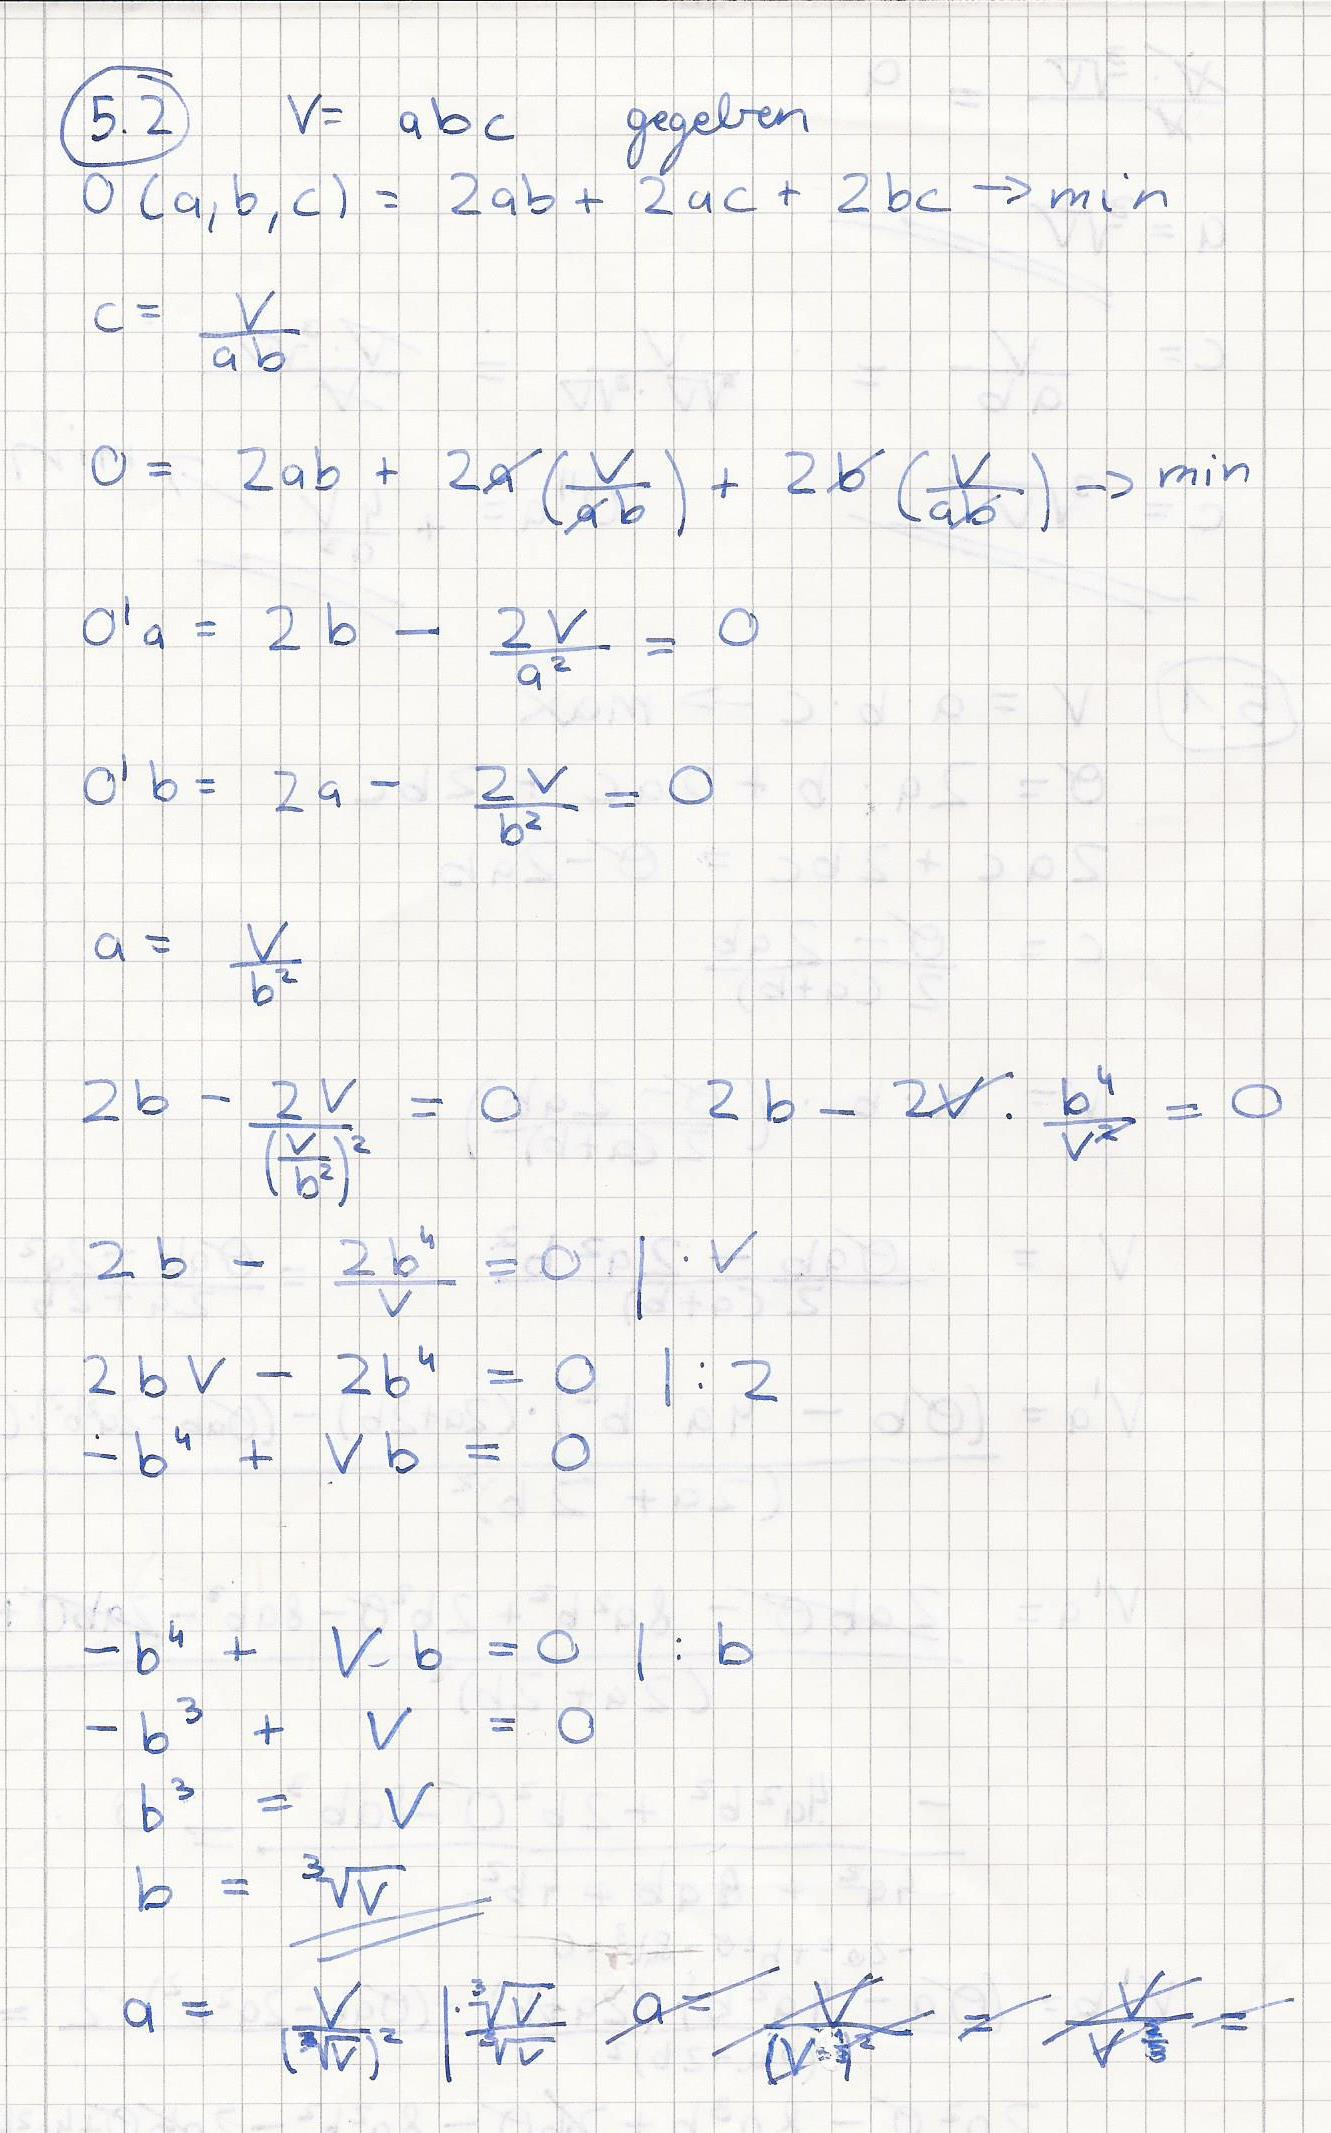 5.2 V = abc gegeben
O(a,b,c) = 2ab + 2ac + 2bc → min
c = V/ab
O = 2ab + 2a(V/ab) + 2b(V/ab) → min
O'a = 2b − 2V/a² = 0
O'b = 2a − 2V/b² = 0
a = V/b²
2b − 2V/(V/b²)² = 0 2b − 2V · b⁴/V² = 0
2b − 2b⁴/V = 0 | · V
2bV − 2b⁴ = 0 | : 2
−b⁴ + Vb = 0
−b⁴ + V·b = 0 | : b
−b³ + V = 0
b³ = V
b = ³√V
a = V/(³√V)² | · ³√V/³√V a = V/(V^1/3)² = V/V^2/3 =